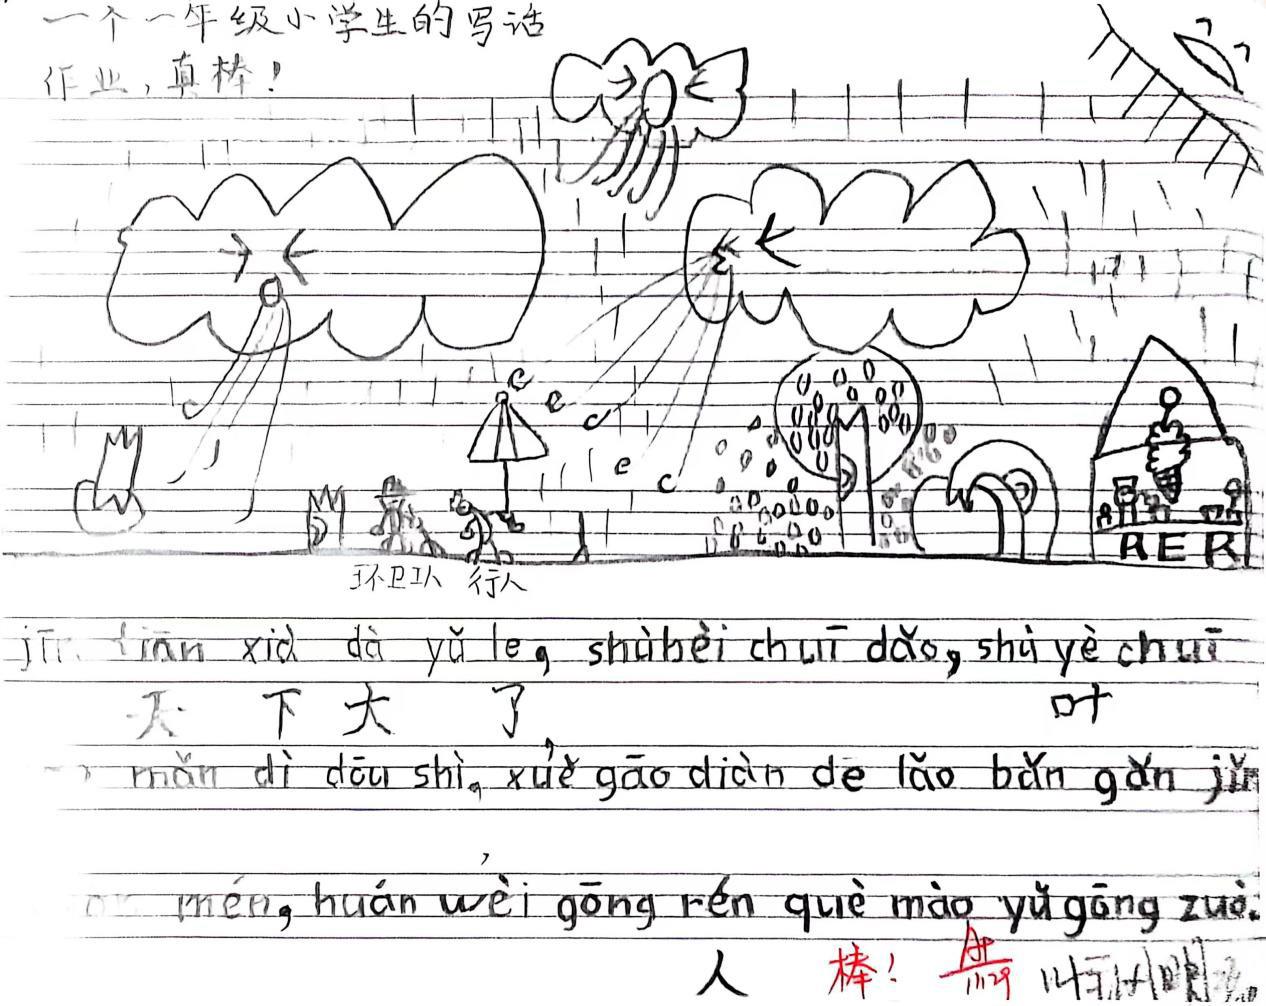 一个一年级小学生的写话
作业，真棒！
RER
环卫工人 行人
jīn tiān xià dà yǔ le，shùbèi chuī dǎo，shù yè chuī
天 下 大 了 叶
mǎn dì dōu shì，xuě gāo diàn de lǎo bǎn gǎn jǐn
mén，huán wèi gōng rén què mào yǔ gōng zuò.
人 棒！ A+ 11.29